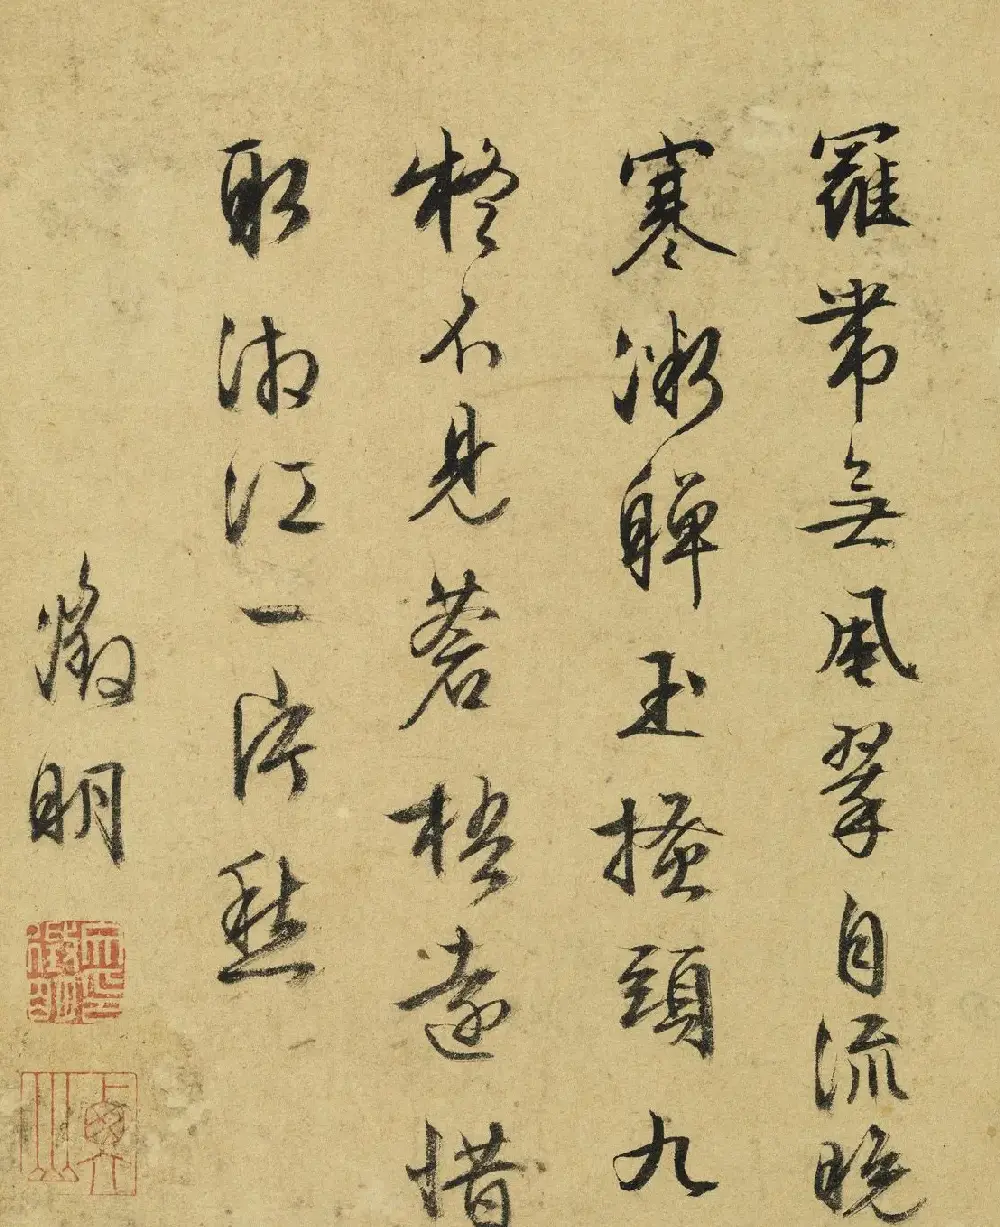 羅帶無風翠自流晚
寒微軃玉搔頭九
疑不見蒼梧遠惜
取湘江一片愁
徵明